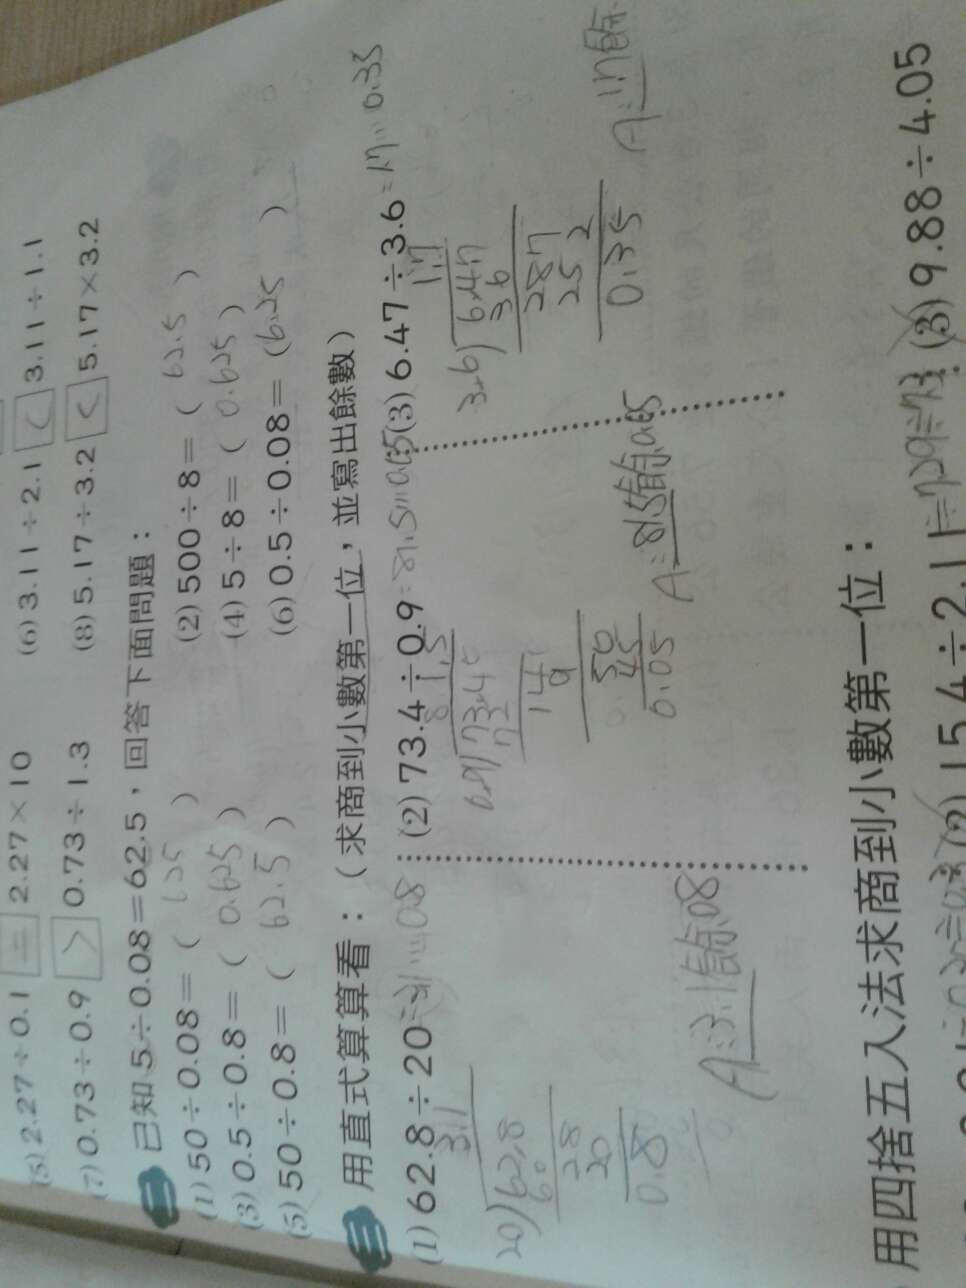 (5) 2.27÷0.1 = 2.27×10 (6) 3.11÷2.1 < 3.11÷1.1
(7) 0.73÷0.9 > 0.73÷1.3 (8) 5.17÷3.2 < 5.17×3.2
二 已知5÷0.08=62.5，回答下面問題：
(1) 50÷0.08=( 625 ) (2) 500÷8=( 62.5 )
(3) 0.5÷0.8=( 0.625 ) (4) 5÷8=( 0.625 )
(5) 50÷0.8=( 62.5 ) (6) 0.5÷0.08=( 6.25 )
三 用直式算算看：(求商到小數第一位，並寫出餘數)
(1) 62.8÷20=3.1…0.8
3.1
20)62.8
60
28
20
0.8
A:3.1餘0.8
(2) 73.4÷0.9=81.5…0.05
81.5
0.9)73.4
72
14
9
50
45
0.05
A:81.5餘0.05
(3) 6.47÷3.6=1.7…0.35
1.7
3.6)6.47
36
287
252
0.35
A:1.7餘
用四捨五入法求商到小數第一位：
(2) 15.4÷2.1 (3) 9.88÷4.05